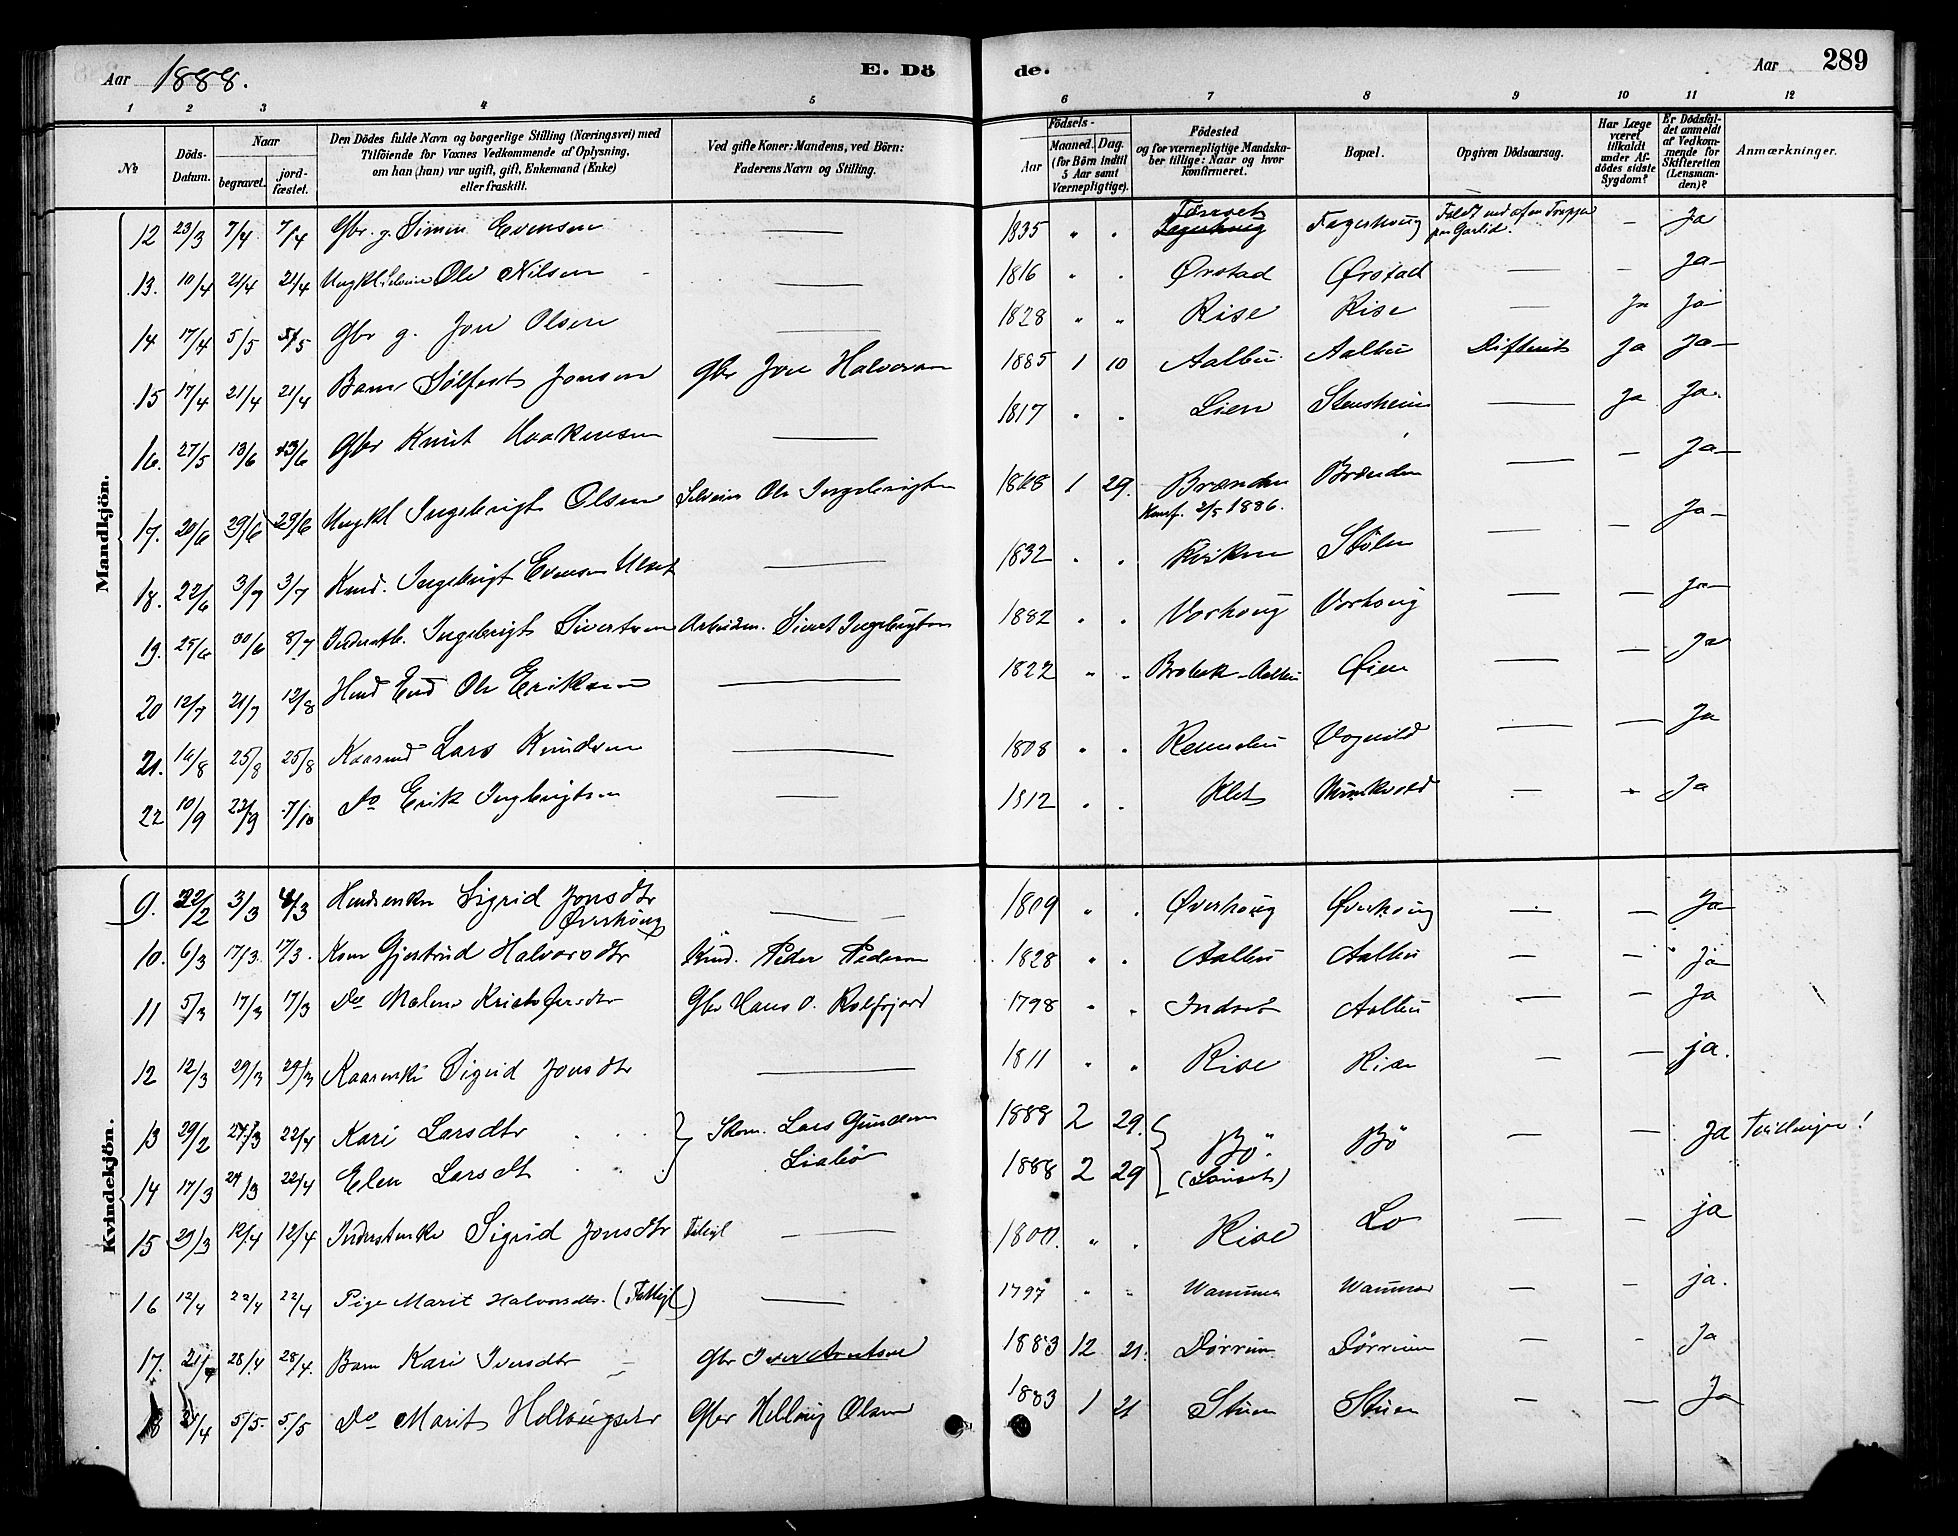 Aar 1888. E. Dö de. Aar 289
1 2 3 4 5 6 7 8 9 10 11 12
No
Döds-Datum.
Naar
begravet. jordfæstet.
Den Dödes fulde Navn og borgerlige Stilling (Næringsvei) med
Tilföiende for Voxnes Vedkommende af Oplysning,
om han (hun) var ugift, gift, Enkemand (Enke)
eller fraskilt.
Ved gifte Koner: Mandens, ved Börn:
Faderens Navn og Stilling.
Födsels-
Aar Maaned. Dag.
(for Börn indtil
5 Aar samt
Værnepligtige).
Födested
og for værnepligtige Mandska-
ber tillige: Naar og hvor
konfirmeret.
Bopæl.
Opgiven Dödsaarsag.
Har Læge
været
tilkaldt
under Af-
dödes sidste
Sygdom?
Er Dödsfal-
det anmeldt
af Vedkom-
mende for
Skifteretten
(Lensman-
den)?
Anmærkninger.
Mandkjön.
12 23/3 7/4 7/4 Gbr. g. Simen Evensen — 1835 " " Fagerhoug Fagerhoug Faldt ned af en Trappe paa Garlid. — Ja
13. 10/4 21/4 21/4 Ungkl. Selveier Ole Nilsen — 1816 " " Ørstad Ørstad — — Ja
14 17/4 5/5 5/5 Gbr g. Jon Olsen — 1828 " " Rise Rise — Ja ja
15 17/4 21/4 21/4 Barn Sølfest Jonsen Gbr Jon Halvorsen 1885 1 10 Aalbu Aalbu Difterit Ja Ja
16. 27/5 13/6 13/6 Gbr Knut Haakensen — 1817 " " Lien Stensheim — Ja Ja.
17. 20/6 29/6 29/6 Ungkl Ingebrigt Olsen Selveier Ole Ingebrigtsen 1868 1 29. Brænden Brænden — — Ja
Konf. 2/5 1886.
18. 22/6 3/7 3/7 Ingebrigt Evensen — 1832 " " Kvikne Stølen — — Ja
19. 25/6 30/6 8/7 Ingebrigt Sivertsen Arbeidsm. Sivert Ingebrigtsen 1882 " " Vorhoug Vorhoug — — Ja
20 12/7 21/7 12/8 Ole Eriksen — 1822 " " Brobak-Aalbu Øien — — Ja
21. 16/8 25/8 25/8 Lars Knudsen — 1808 " " Vognild — — Ja
22 10/9 22/9 7/10 Do Erik Ingebrigtsen — 1812 " " Klet Munkvold — " Ja
Kvindekjön.
9. 22/2 3/3 4/3 Sigrid Jonsdtr — 1809 " " Øverhoug Øverhoug — — Ja
Øverhoug
10. 6/3 17/3 17/3. Kone Gjertrud Halvorsdtr Peder Pedersen 1828 " " Aalbu Aalbu — — ja
11 5/3 17/3 17/3 Do Malene Kristofersdtr Gbr Hans O. Rolfsjord 1798 " " Indset Aalbu — — Ja
12 12/3 29/3 29/3 Kaarenke Sigrid Jonsdtr — 1811 " " Rise Rise — — ja.
13 29/2 24/3 22/4 Kari Larsdtr Lars Gundersen 1888 2 29. Bö Bö — — Ja Tvillinger!
14 17/3 24/3 22/4 Elen Larsdt Liabö 1888 2 29 (Lønset)
15 29/3 12/4 12/4 Inderstenke Sigrid Jonsdtr — 1800. " " Rise Lo — — ja
16 12/4 22/4 22/4 Pige Marit Halvorsdtr. (Fattigl) — 1797 " " Wammer Wammer — — ja.
17. 21/4 28/4 28/4. Barn Kari Iversdtr Gbr Iver Arntsen 1883 12 21. Dørrum Dørrum — — Ja
18 21/4 5/5 5/5 Do Marit Hellougsdtr Gbr Helloug Olsen 1883 1 21 Stuen Stuen — — Ja